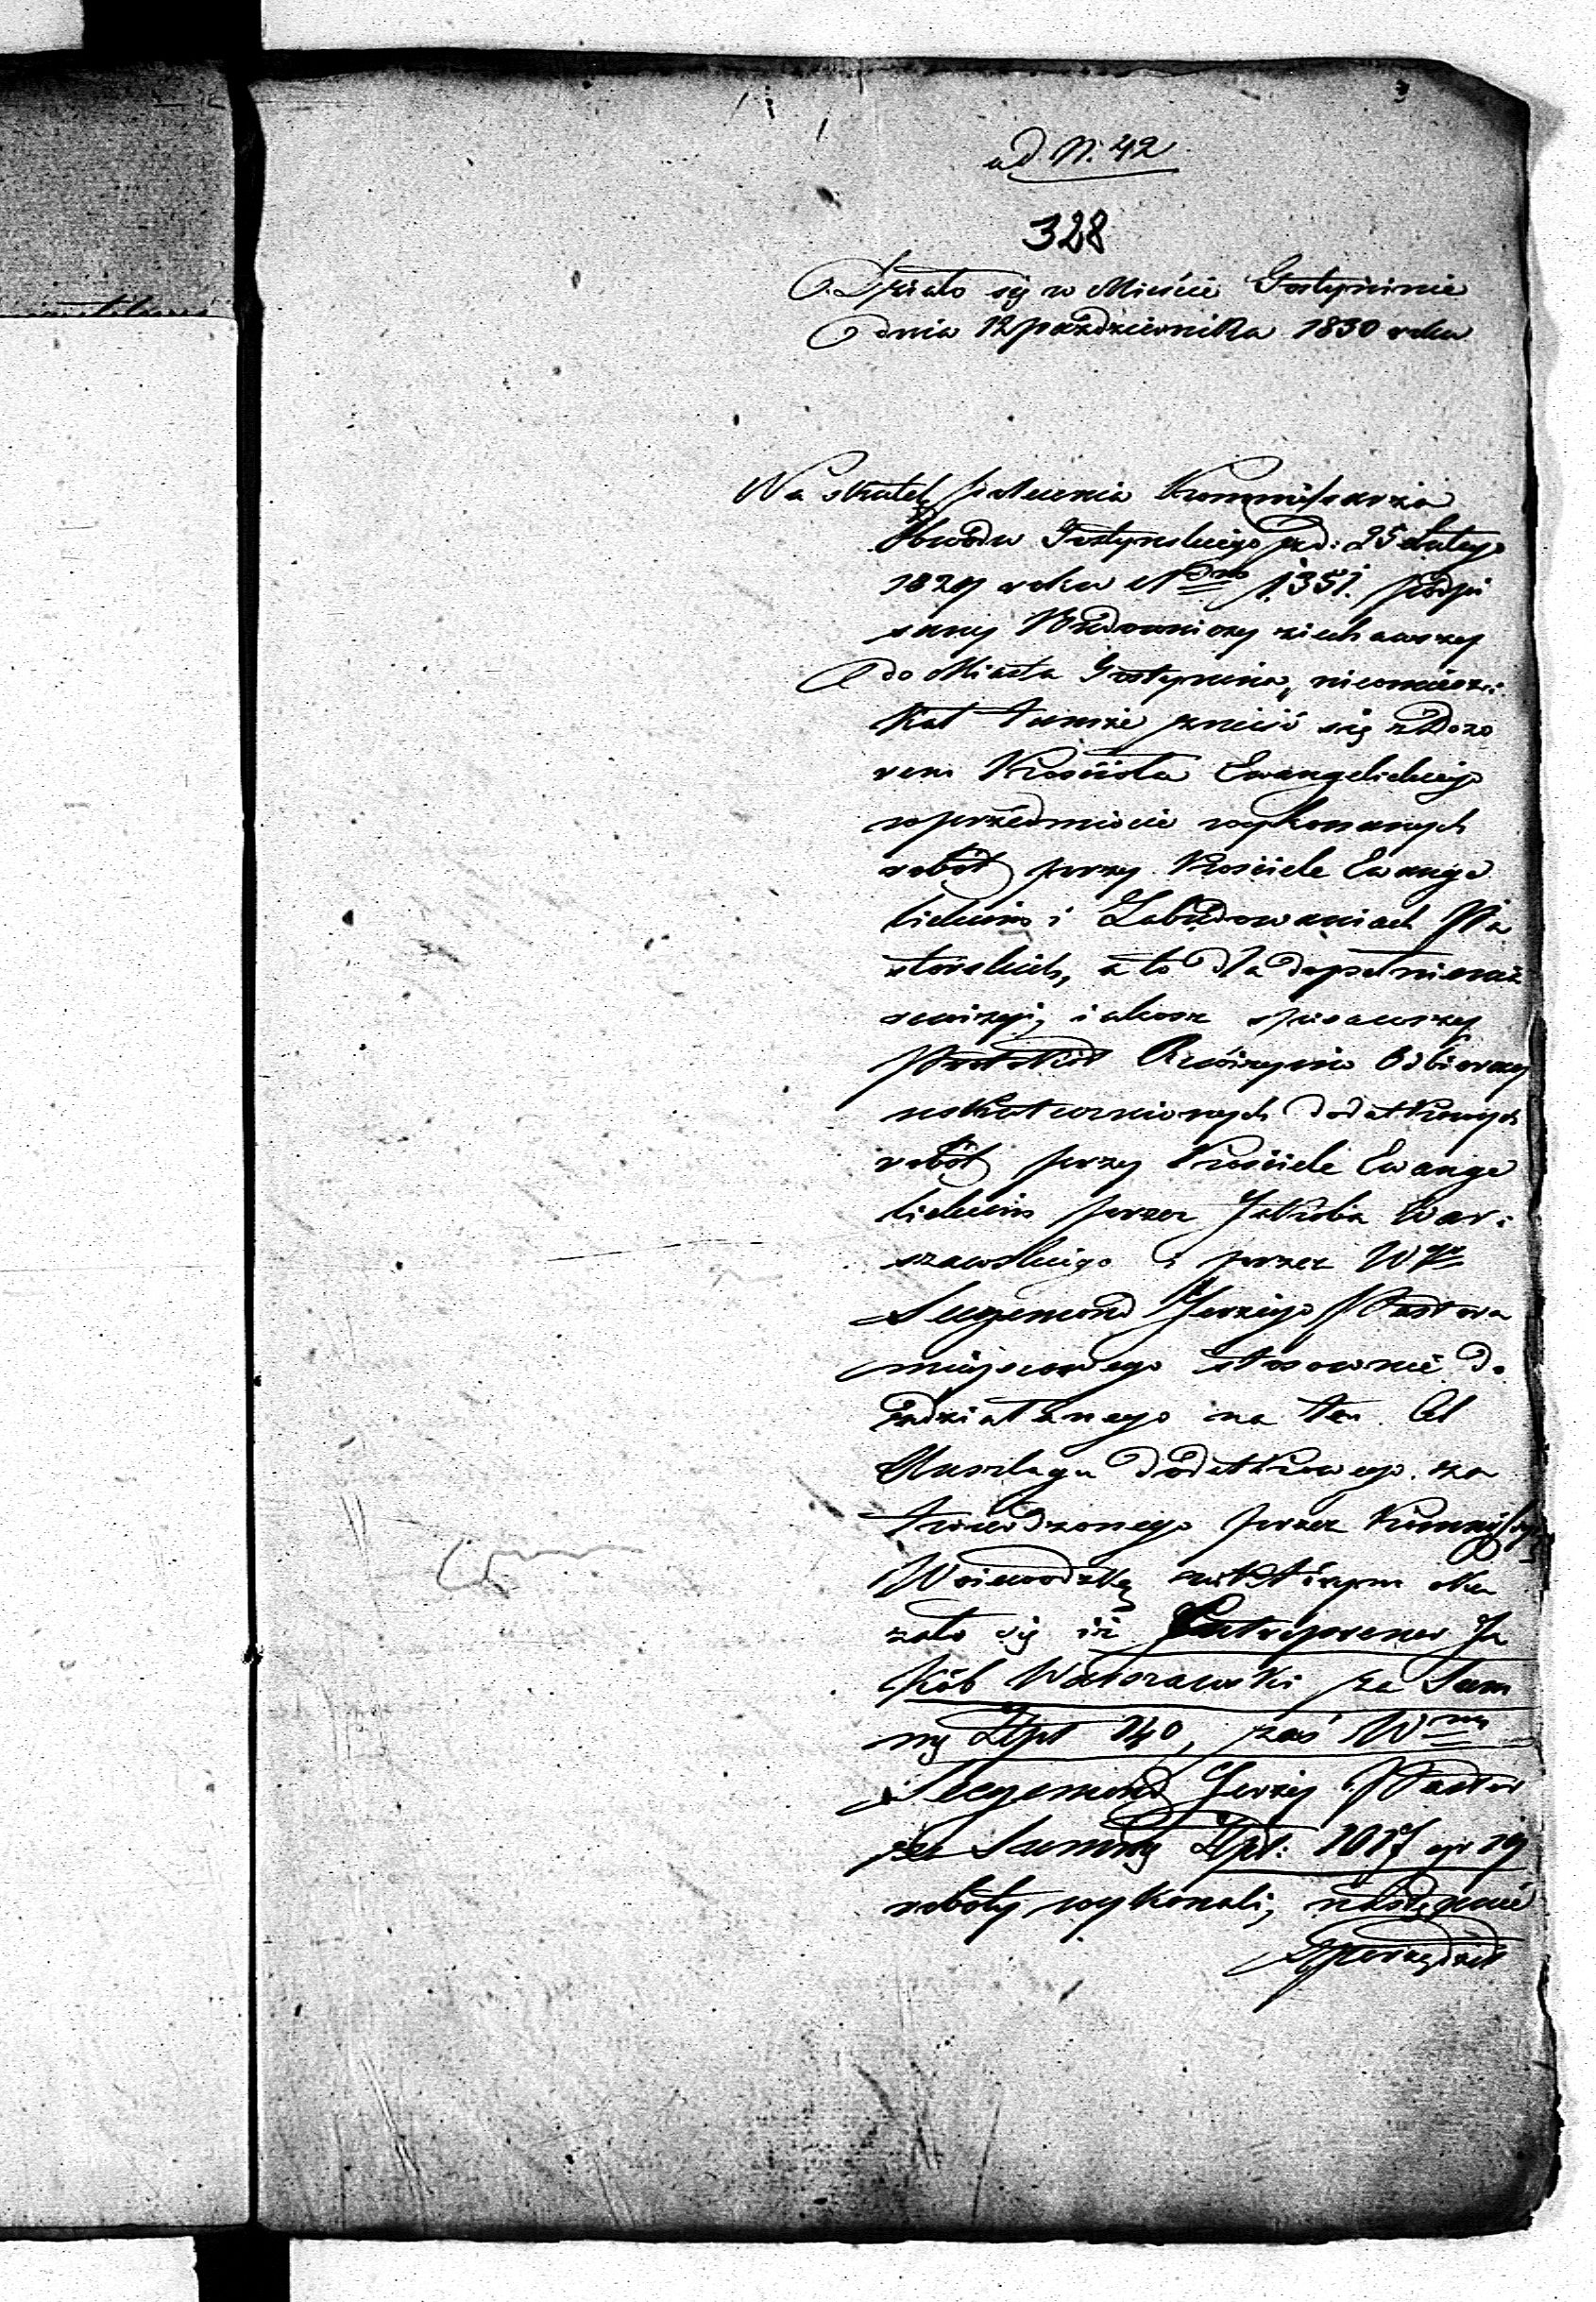 ad N. 42
328
Działo się w Mieście Gostyninie
dnia 12 października 1830 roku
Na skutek polecenia Kommissarza
Obwodu Gostynskiego pod: 25 Lutego
1829 roku Nro 1351. podpi
sany Budowniczy ziechawszy
do Miasta Gostynina, nieomiesz:
kał tamże znieść się z Dozo
rem Kościoła Ewangelickiego
w przedmiocie wykonanych
robót przy Kościele Ewange
lickim i Zabudowaniach Pa
storskich, a to dla dopełnienia
rewizyi, iakosz spisawszy
Protokół Rewizyino Odbiorczy
uskutecznionych dodatkowych
robót przy Kościele Ewange
lickim przez Jakóba War:
szawskiego i przez Wgo
Jerzego Pastora
mieyscowego stosownie do
zdziałanego na ten Cel
Anszlagu dodatkowego za
twierdzonego przez Kommissyą
Woiewódzką oka
zało się iż Entreprener Ja
kób Warszawski za Sum
mę Złpl 140, zaś W
Jerzy Pastor
za Summę Złpl: 1017 gr 19
roboty wykonali, następnie